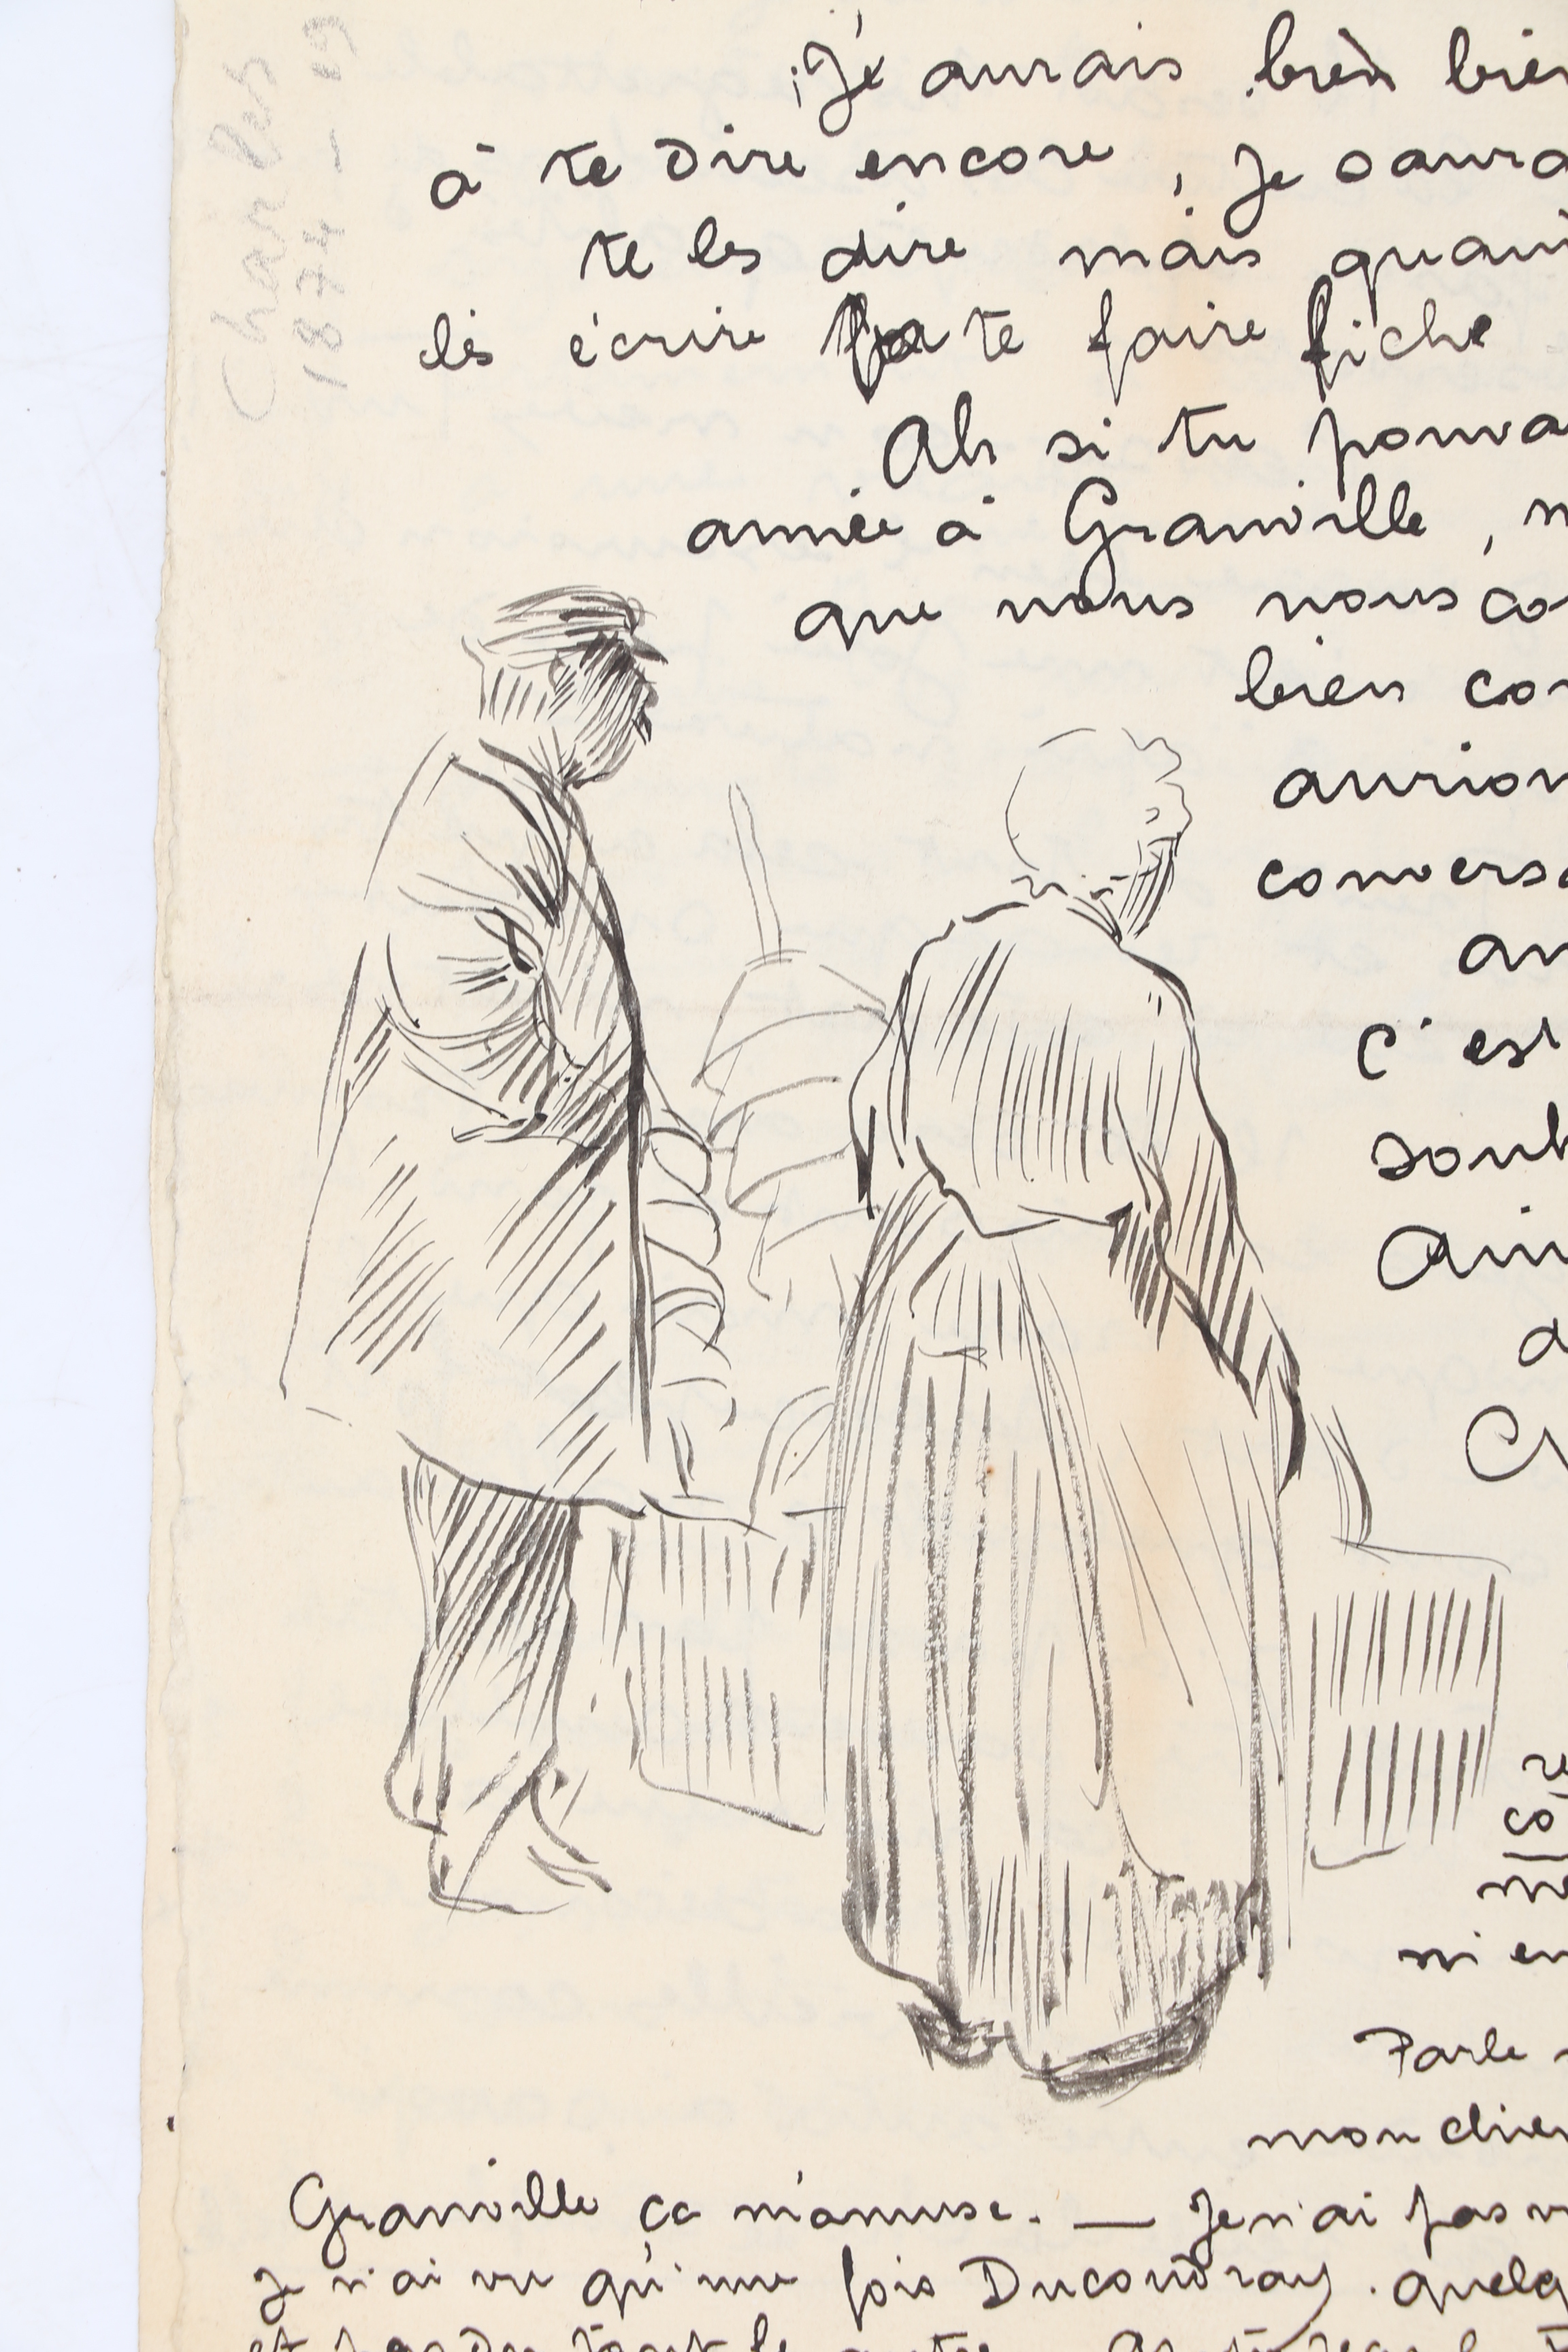 Charles
1874 - 19
Je aurais bien bien
à te dire encore, Je saura
te les dire mais quant
les écrire te faire fiche
Ah si tu pouva
année à Granville, n
que nous nous co
bien con
aurion
conversa
an
c'est
souh
Ain
d
re
co
ni en
Parle
mon chien
Granville ça m'amuse. — Je n'ai pas v
Je n'ai vu qu'une fois Ducoudray. quelq
et